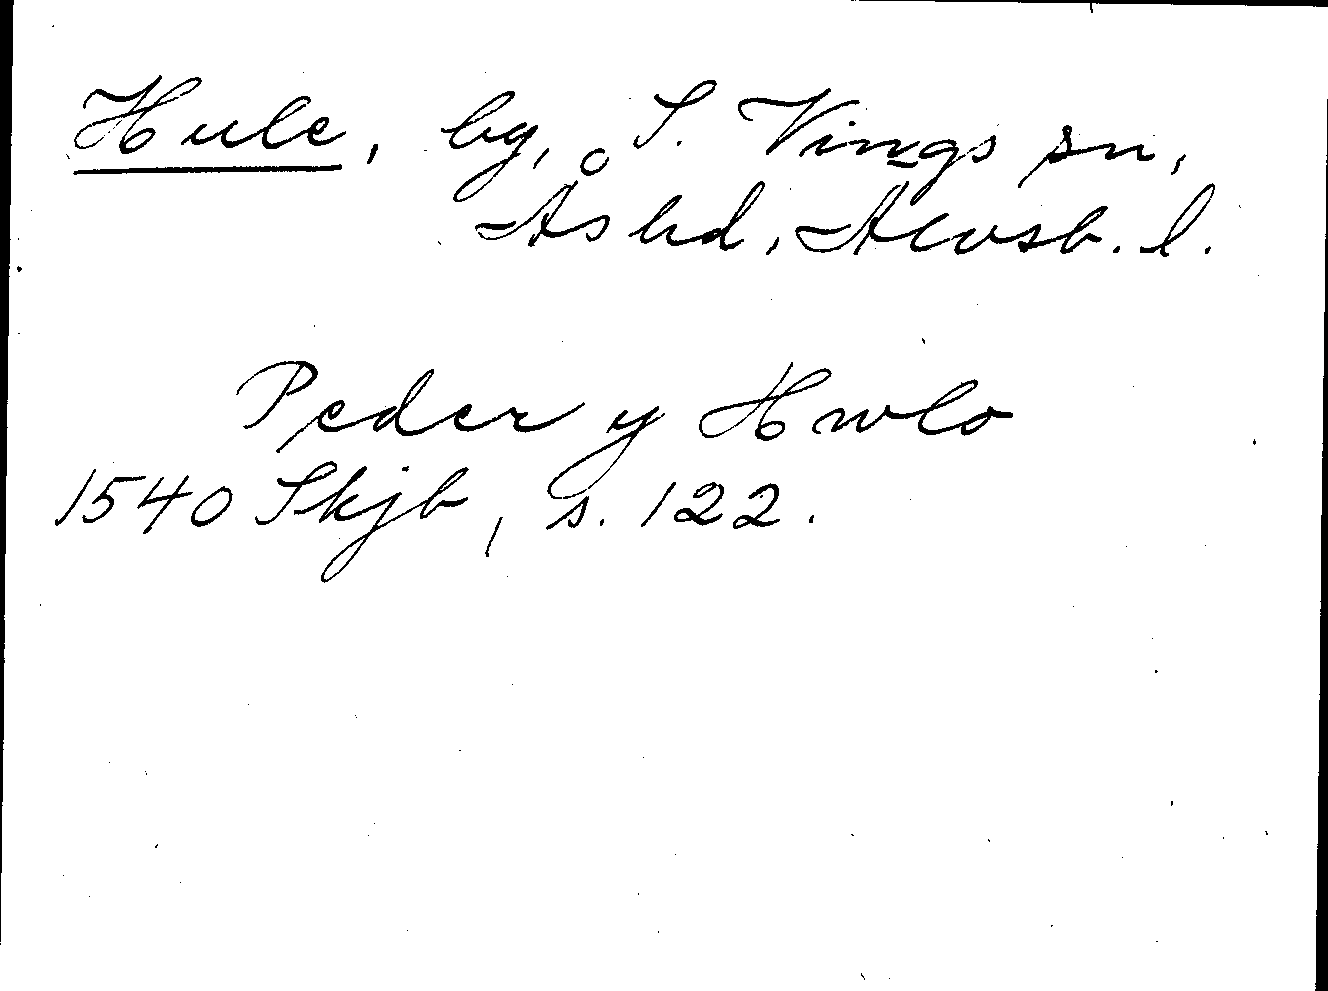 Hule, by, S. Vings sn,
Ås hd, Älvsb. l.
Peder y Hwlo
1540 Skjb, s. 122.